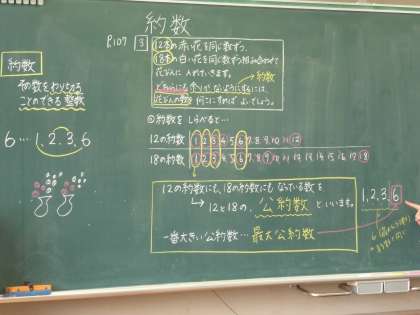 約数
P.107 3
12本の赤い花を同じ数ずつ、
18本の白い花を同じ数ずつ組み合わせて
花びんに入れていきます。
どちらにも余りがないようにするには、
花びんの数を何こにすればよいでしょう。
約数
約数
をわりきる
ことのできる整数
6…1, 2, 3, 6
◎約数をしらべると…
12の約数 1 2 3 4 5 6 7 8 9 10 11 12
18の約数 1 2 3 4 5 6 7 8 9 10 11 12 13 14 15 16 17 18
12の約数にも、18の約数にもなっている数を
→12と18の、公約数といいます。
一番大きい公約数…最大公約数
1, 2, 3, 6